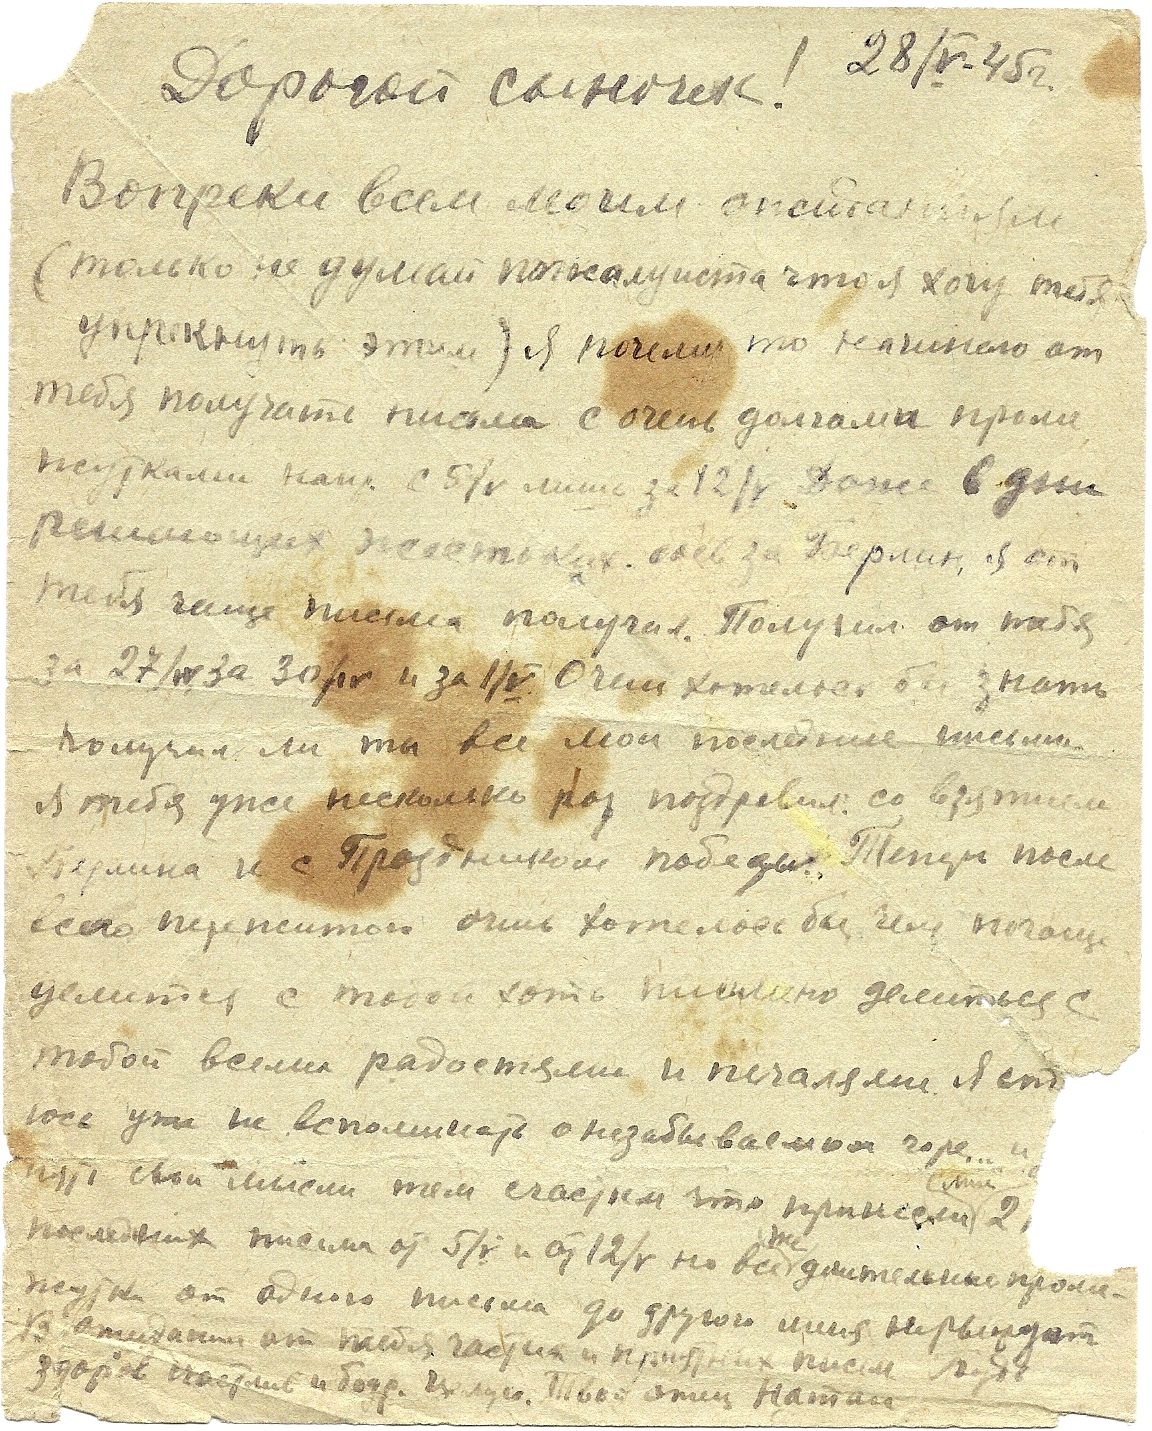 28/V-45г.
Дорогой сыночек!
Вопреки всем моим ожиданиям
(только не думай пожалуиста что я хочу тебя
упрекнуть этим) я почему то начинаю от
тебя получать письма с очень долгами проме
жутками напр. с 5/V лишь за 12/V Даже в дни
решающих жестоких боев за Берлин, я от
тебя чаще письма получал. Получил от тебя
за 27/IV, за 30/IV и за 1/V. Очень хотелось бы знать
получил ли ты все мои последние письма.
Я тебя уже несколько раз поздравил со взятием
Берлина и с Праздником победы. Теперь после
всего пережитого очень хотелось бы чем почаще
делится с тобой хоть письмено делиться с
тобой всеми радостями и печалями. Я ст
юсь уже не вспоминать о незабываемом горе... и
свои мысли тем счастьем что принесли мне 2
последних письма от 5/V и от 12/V но все же длительные проме-
жутки от одного письма до другого меня нервируют
В ожидании от тебя частых и приятных писем Будь
здоров счастлив и бодр. Целую. Твой отец Натан